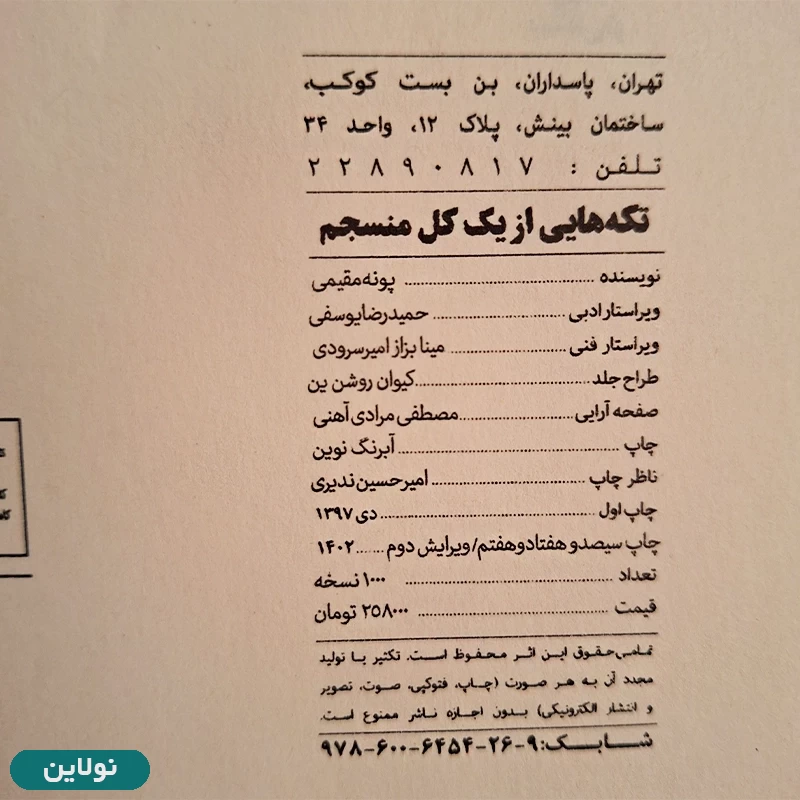 تهران، پاسداران، بن بست کوکب،
ساختمان بینش، پلاک ۱۲، واحد ۳۴
تلفن : ۲۲۸۹۰۸۱۷
تکه‌هایی از یک کل منسجم
نویسنده .......... پونه مقیمی
ویراستار ادبی .......... حمیدرضا یوسفی
ویراستار فنی .......... مینا بزاز امیرسرودی
طراح جلد .......... کیوان روشن بن
صفحه آرایی .......... مصطفی مرادی آهنی
چاپ .......... آبرنگ نوین
ناظر چاپ .......... امیرحسین ندیری
چاپ اول .......... دی ۱۳۹۷
چاپ سیصد و هفتاد و هفتم/ویرایش دوم ...... ۱۴۰۲
تعداد .......... ۱۰۰۰ نسخه
قیمت .......... ۲۵۸۰۰۰ تومان
تمامی حقوق این اثر محفوظ است. تکثیر یا تولید
مجدد آن به هر صورت (چاپ، فتوکپی، صوت، تصویر
و انتشار الکترونیکی) بدون اجازه ناشر ممنوع است.
شابک: ۹-۲۶-۶۴۵۴-۶۰۰-۹۷۸
نولاین